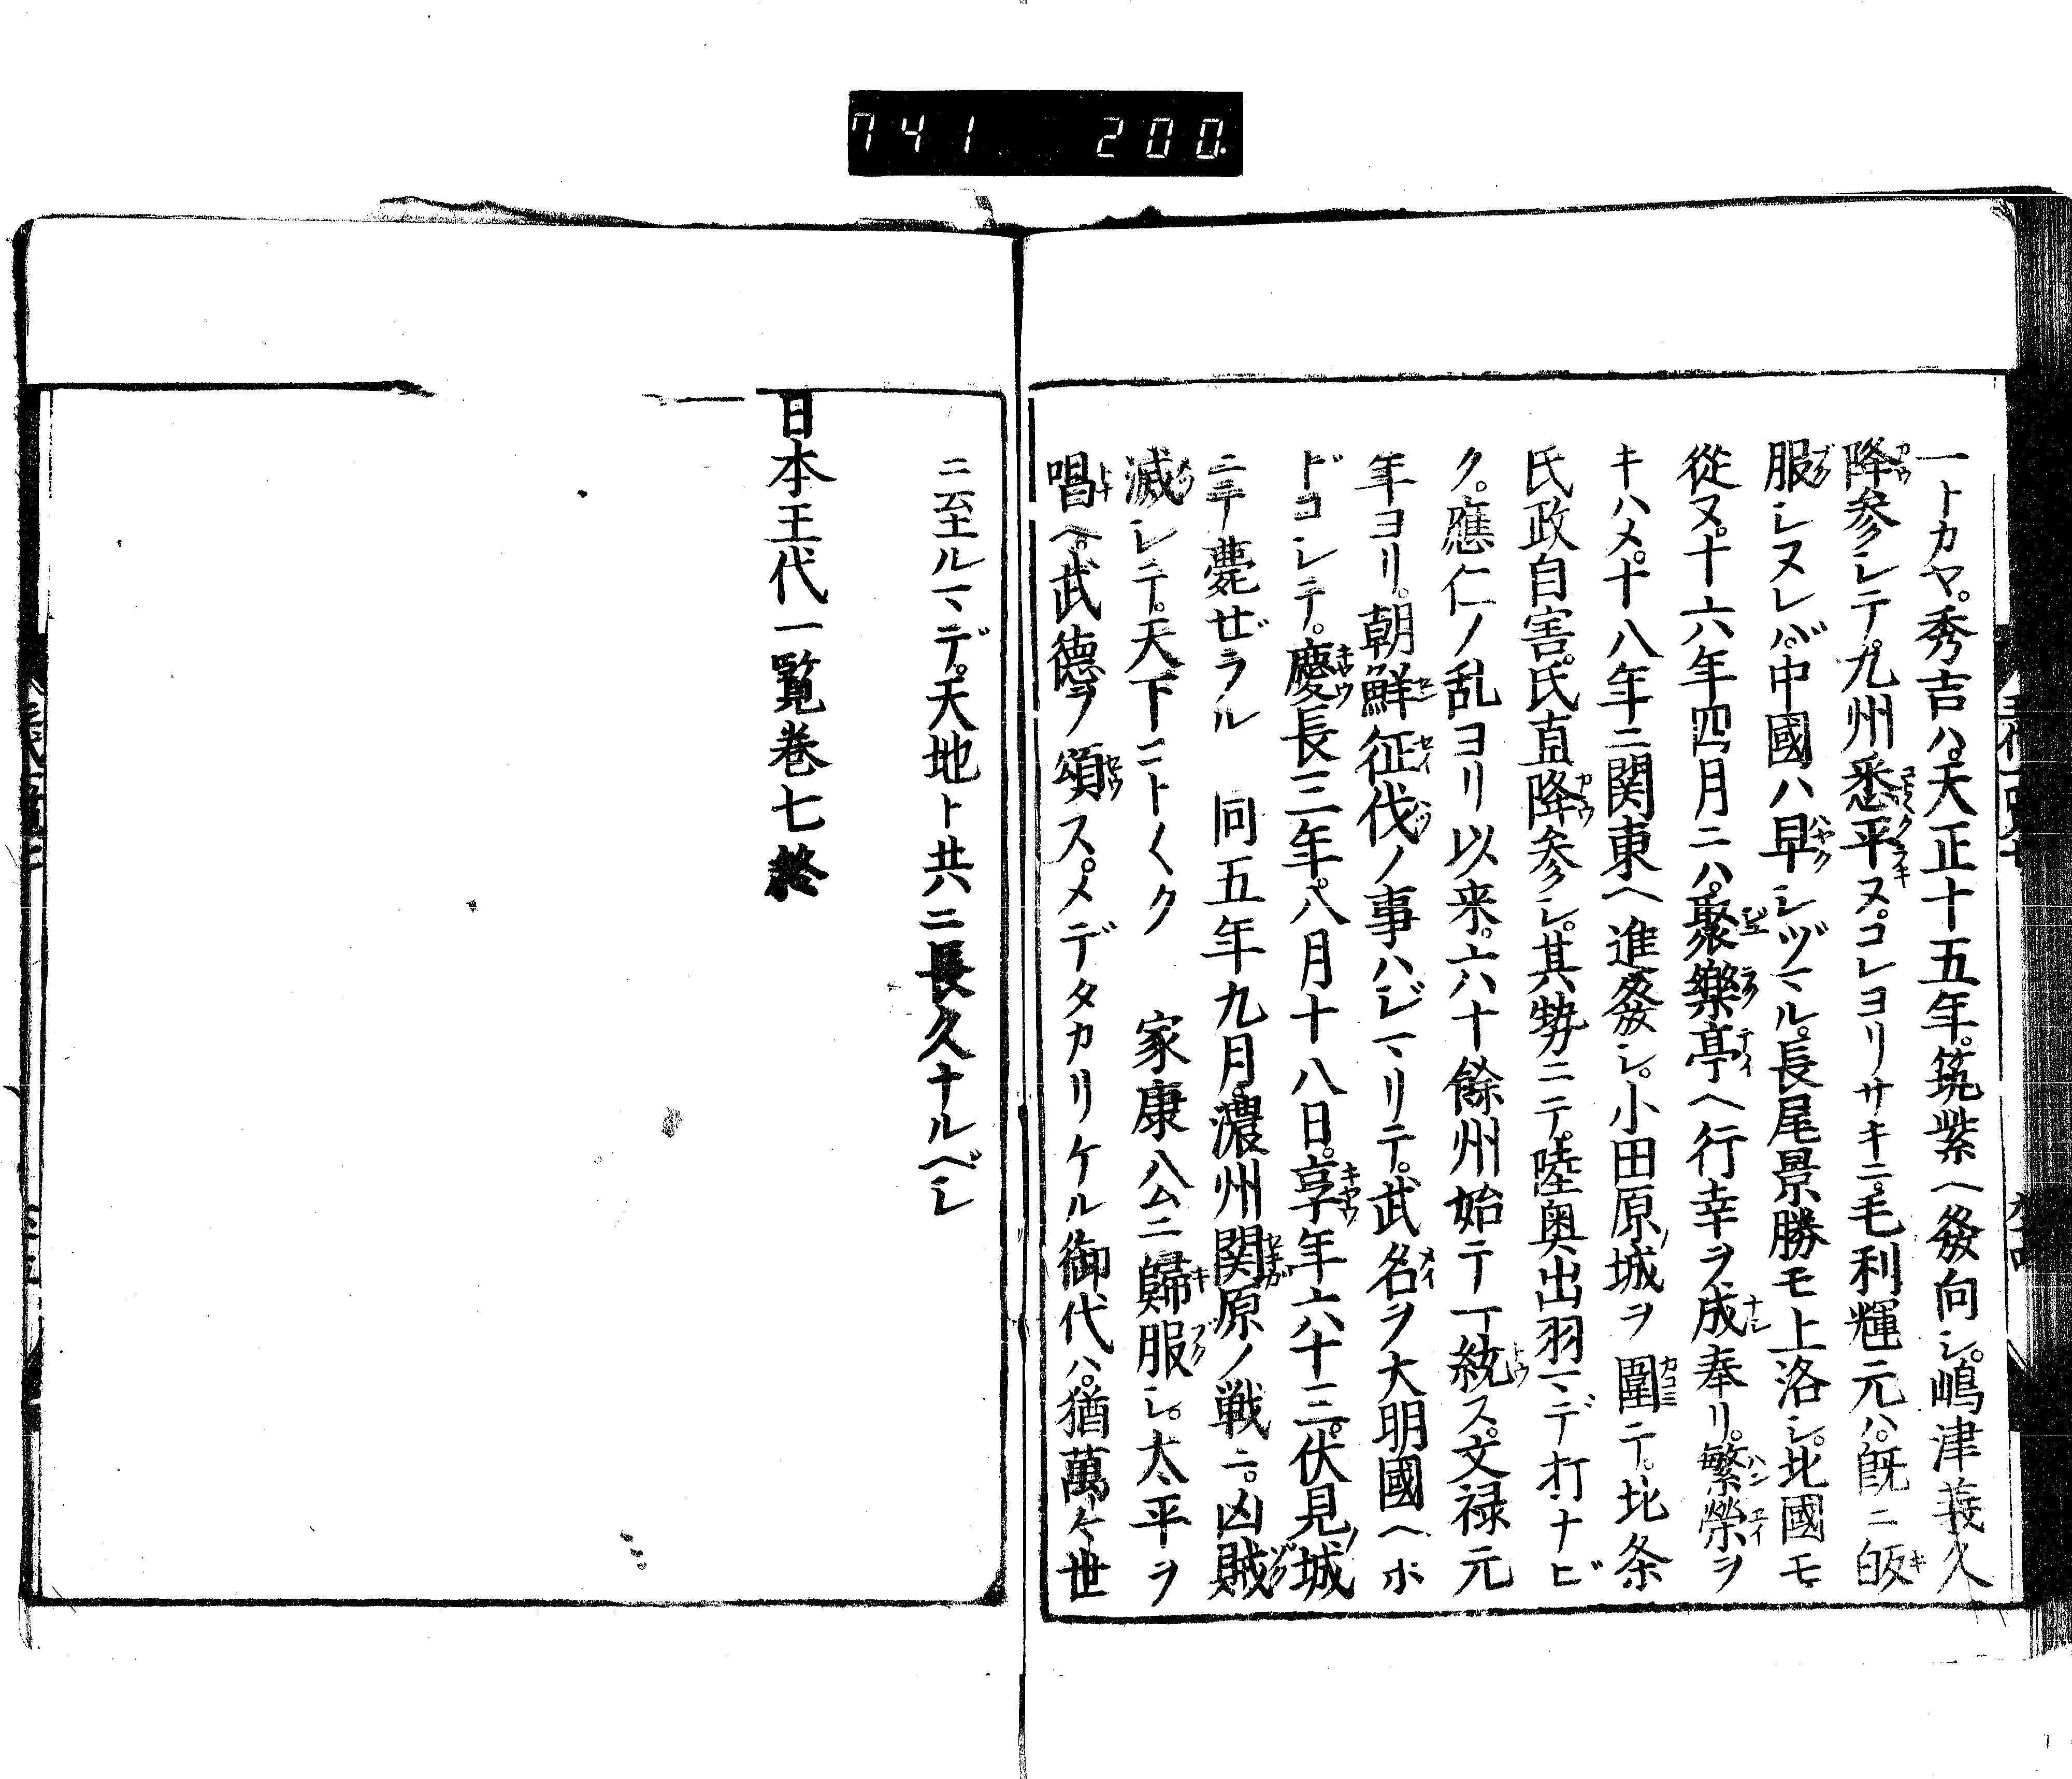 741 200.
一トカヤ。秀吉ハ。天正十五年。筑紫ヘ發向シ。嶋津義久
降参シテ。九州悉平ヌ。コレヨリサキニ。毛利輝元ハ。既ニ皈
服シヌレバ。中國ハ早シヅマル。長尾景勝モ上洛シ。北國モ
從ヌ。十六年四月ニハ。聚樂亭ヘ行幸ヲ成奉リ。繁榮ヲ
キハメ。十八年ニ関東ヘ進發シ。小田原ノ城ヲ圍テ。北条
氏政自害。氏直降参シ。其勢ニテ。陸奥出羽マデ打ナビ
ク。應仁ノ乱ヨリ以来。六十餘州始テ一統ス。文禄元
年ヨリ。朝鮮征伐ノ事ハジマリテ。武名ヲ大明國ヘホ
ドコシテ。慶長三年。八月十八日。享年六十三。伏見ノ城
ニテ薨ゼラル 同五年九月。濃州関原ノ戦ニ。凶賊
滅シテ。天下コトく\ク 家康公ニ歸服シ。太平ヲ
唱ヘ。武德ヲ頌ス。メデタカリケル御代ハ。猶萬々世
ニ至ルマデ。天地ト共ニ長久ナルベシ
日本王代一覧巻七終